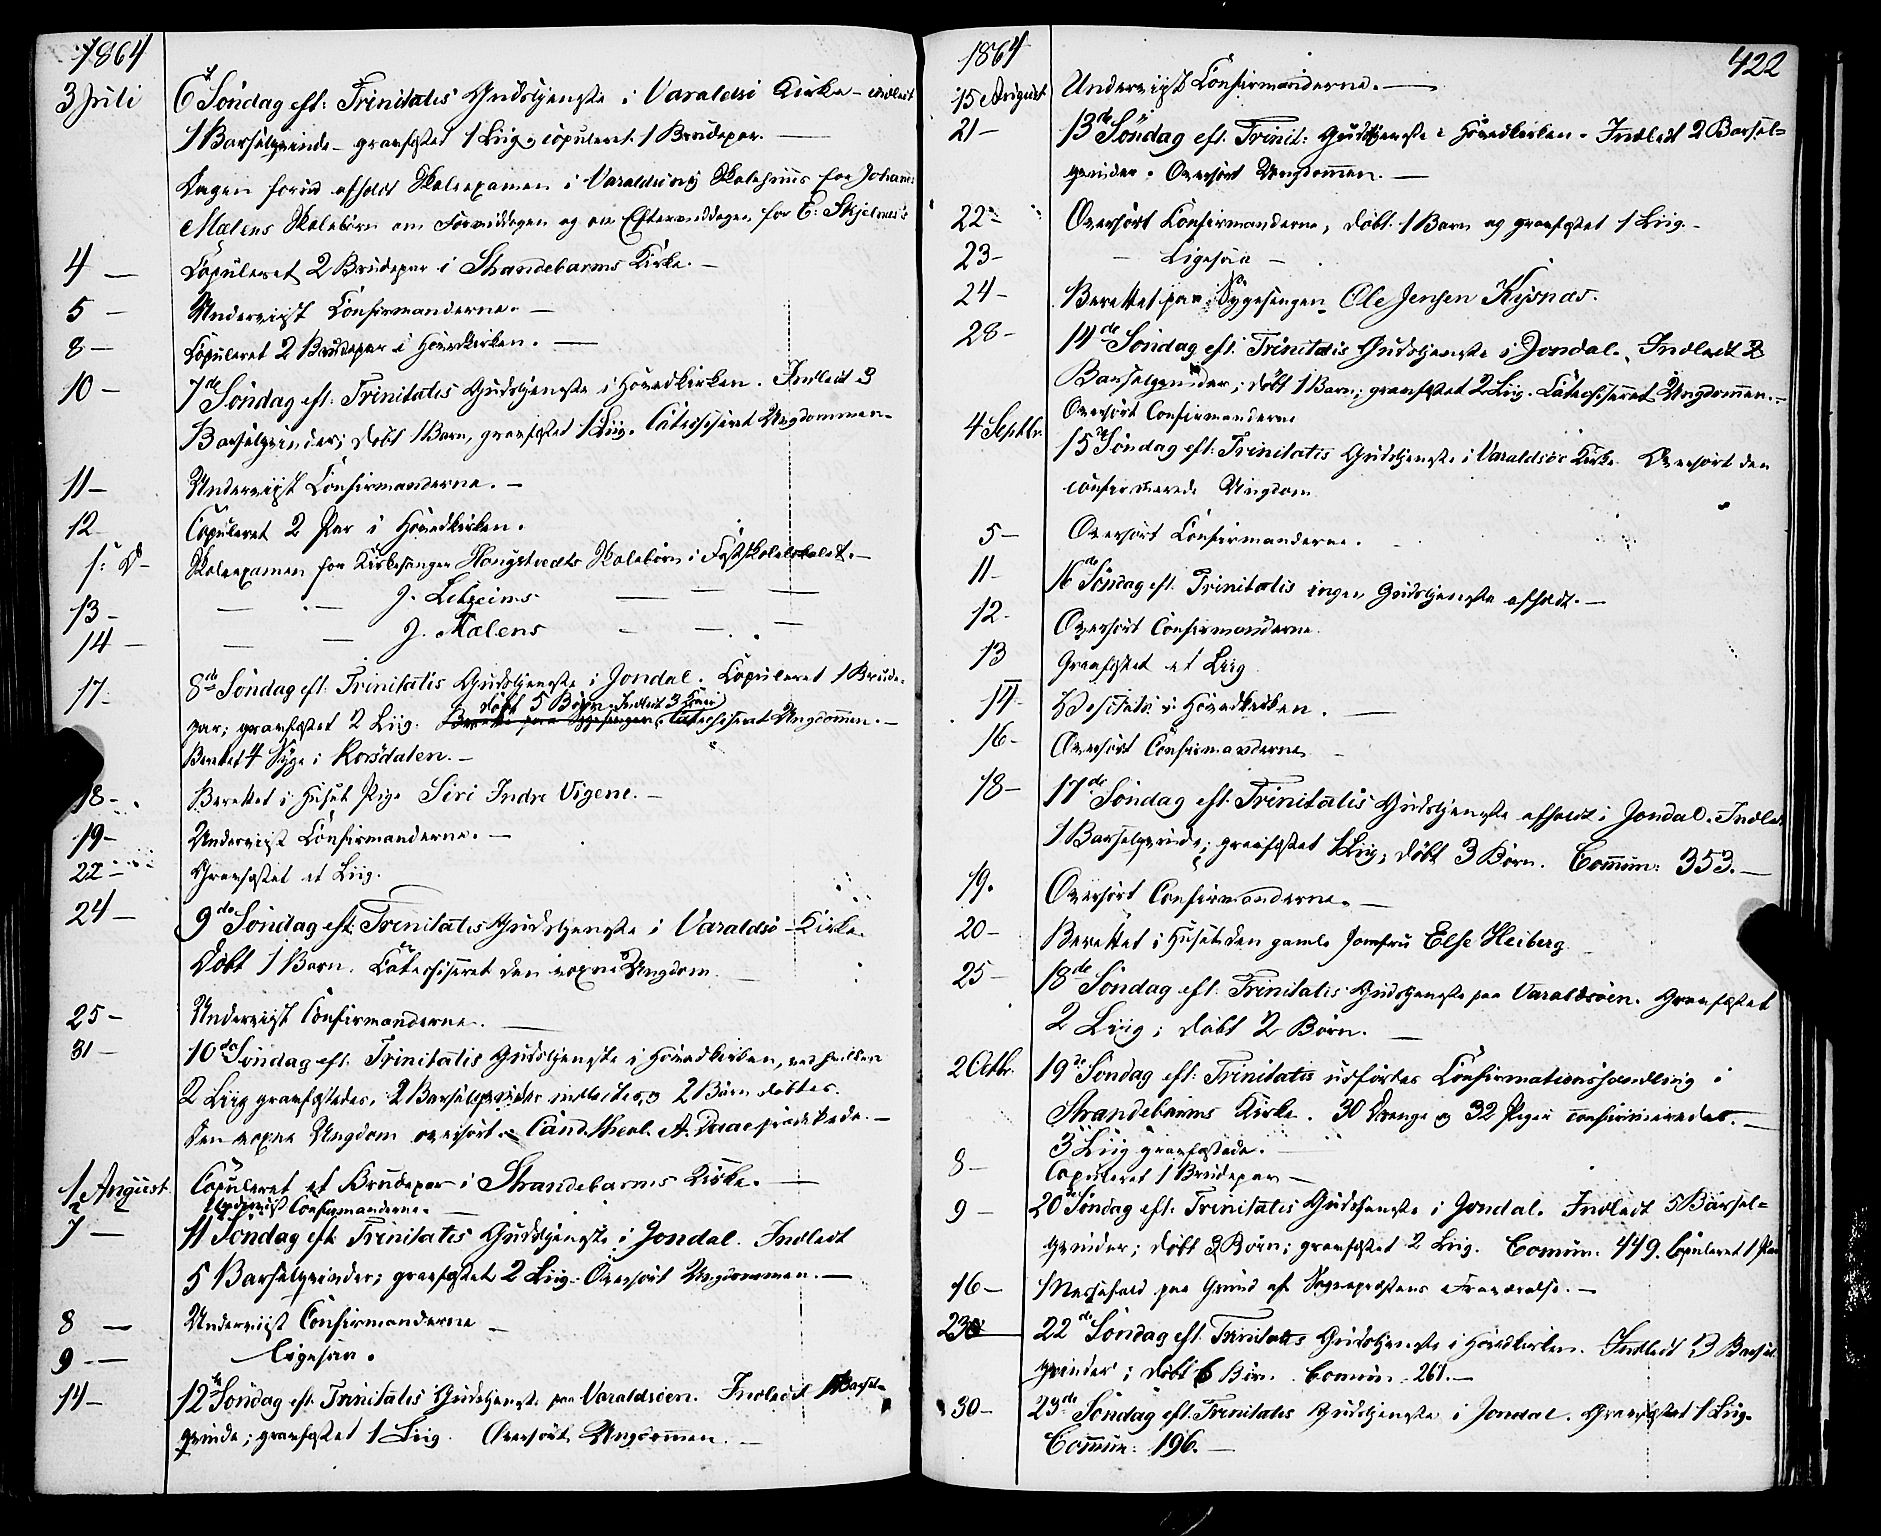 1864
3 Juli 6te Søndag eft: Trinitatis Gudstjeneste i Varaldsø Kirke – indledt
1 Barselqvinde – gravfæstet 1 Liig, copuleret 1 Brudepar. —
Dagen forud afholdt Skoleexamen i Varaldsøens Skolehuus for Johann
Mælens Skolebørn om Formiddagen og om Eftermiddagen for E: Skjelnes's
4 — Copuleret 2 Brudepar i Strandebarms Kirke. —
5 — Underviist Confirmanderne. —
8 — Copuleret 2 Brudepar i Hovedkirken. —
10 — 7de Søndag eft: Trinitatis Gudstjeneste i Hovedkirken. Indledt 3
Barselqvinder; døbt 1 Barn, gravfæstet 1 Liig. Catechiseret Ungdommen.
11 — Underviist Confirmanderne. —
12 Copuleret 2 Par i Hovedkirken.
s: D — Skoleexamen for Kirkesanger Haugstvedts Skolebørn i Fastskolelokalet. —
13 — — — J. Letreims — — —
14 — — — J. Mælens — — —
17 — 8de Søndag eft: Trinitatis Gudstjeneste i Jondal. Copuleret 1 Brude-
døbt 5 Børn Indledt 3 Koner
par; gravfæstet 2 Liig. Catechiseret Ungdommen. —
Berettet 4 Syge i Korsdalen. —
18 — Berettet i Huset Pige Siri Indre Vigene. —
19 — Underviist Confirmanderne. —
22 — Gravfæstet et Liig.
24 — 9de Søndag eft: Trinitatis Gudstjeneste i Varaldsø – Kirke.
Døbt 1 Barn. Catechiseret den voxne Ungdom.
25 — Underviist Confirmanderne. —
31 — 10de Søndag eft: Trinitatis Gudstjeneste i Hovedkirken, ved hvilken
2 Liig gravfæstedes, 2 Barselqvinder indledtes, og 2 Børn døbtes.
Den voxne Ungdom overhørt. Cand. theol. A. Daae prædikede. —
1 August Copuleret et Brudepar i Strandebarms Kirke. —
2 — Underviist Confirmanderne. —
7 — 11 Søndag eft: Trinitatis Gudstjeneste i Jondal. Indledt
5 Barselqvinder; gravfæstet 2 Liig. Overhørt Ungdommen. —
8 — Underviist Confirmanderne —
9 — Ligesaa.
14 — 12te Søndag eft: Trinitatis Gudstjeneste paa Varaldsøen. Indledt 1 Barsel-
qvinde; gravfæstet 1 Liig. Overhørt Ungdommen. —
1864 422
15 August Underviist Confirmanderne. —
21 — 13de Søndag eft. Trinit: Gudstjeneste i Hovedkirken. Indledt 2 Barsel-
qvinder. Overhørt Ungdommen. —
22 — Overhørt Confirmanderne, døbt 1 Barn og gravfæstet 1 Liig. —
23 — — Ligesaa —
24 — Berettet paa Sygesengen Ole Jensen Kysnæs.
28 — 14de Søndag eft: Trinitatis Gudstjeneste i Jondal. Indledt
Barselqvinder; døbt 1 Barn; gravfæstet 2 Liig. Catechiseret Ungdommen. —
Overhørt Confirmanderne
4 Septbr. 15de Søndag eft: Trinitatis Gudstjeneste i Varaldsøe Kirke Overhørt den
confirmerede Ungdom
5 — Overhørt Confirmanderne. —
11 — 16de Søndag eft. Trinitatis ingen Gudstjeneste afholdt. —
12 — Overhørt Confirmanderne.
13 Gravfæstet et Liig
14 — Visitats i Hovedkirken. —
16 — Overhørt Confirmanderne —
18 — 17de Søndag eft: Trinitatis Gudstjeneste afholdt i Jondal. Indledt
1 Barselqvinde; gravfæstet 1 Liig; døbt 3 Børn. Commun: 353. —
19. Overhørt Confirmanderne. —
20 — Berettet i Huset den gamle Jomfru Else Heiberg
25 — 18de Søndag eft. Trinitatis Gudstjeneste paa Varaldsøen. Gravfæstet
2 Liig; døbt 2 Børn. —
2 Octbr. 19de Søndag eft: Trinitatis udførtes Confirmationshandling i
Strandebarms Kirke. 30 Drenge og 32 Piger confirmeredes. —
3 Liig gravfæstede. —
8 — Copuleret 1 Brudepar —
9 — 20de Søndag eft. Trinitatis Gudstjeneste i Jondal. Indledt 5 Barsel-
qvinder; døbt 2 Børn; gravfæstet 2 Liig. Comun. 449. Copuleret 1 Par
16 — Messefald paa Grund af Sognepræstens Fraværelse. —
23 — 22de Søndag eft. Trinitatis Gudstjeneste i Hovedkirken. Indledt 3 Barsel
qvinder; døbt 6 Børn. Comun. 261. —
30 — 23de Søndag eft. Trinitatis Gudstjeneste i Jondal. Gravfæstet 1 Liig.
Commun: 196. —